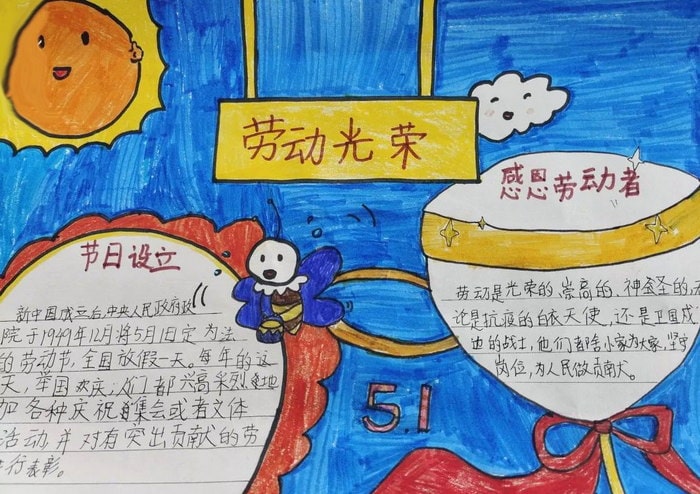 劳动光荣
节日设立
新中国成立后,中央人民政府政
院于1949年12月将5月1日定为法
的劳动节,全国放假一天。每年的这
天,举国欢庆,人们都兴高采烈地
加各种庆祝集会或者文体
活动并对有突出贡献的劳
行表彰。
感恩劳动者
劳动是光荣的、崇高的、神圣的,无
论是抗疫的白衣天使,还是卫国戍
边的战士,他们舍小家为大家,坚守
岗位,为人民做贡献。
5.1